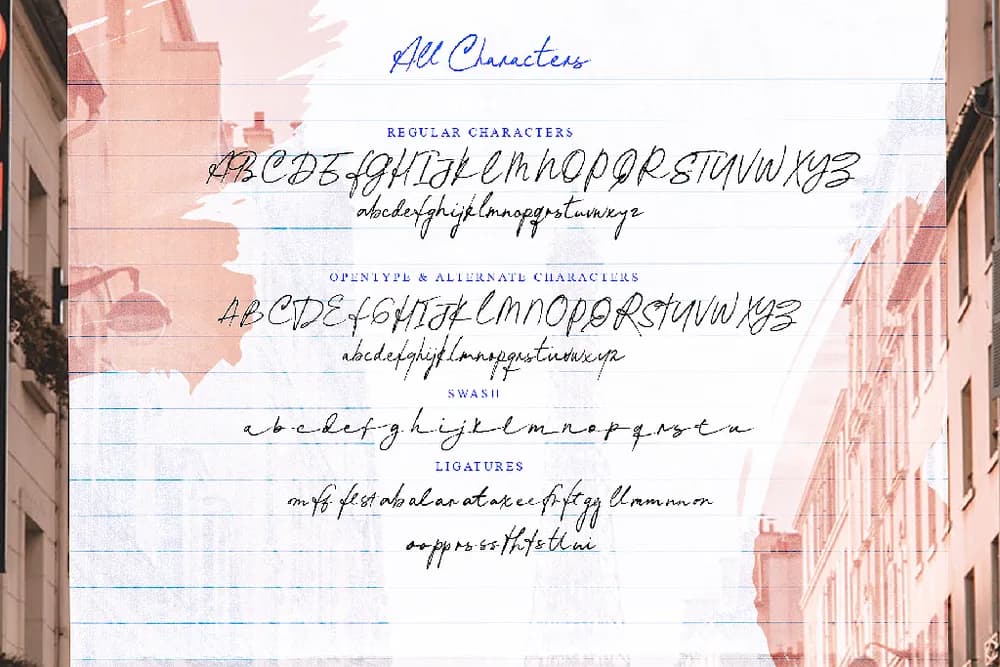 All Characters
REGULAR CHARACTERS
ABCDEfGHIJKLMNOPQRSTUVWXYZ
abcdefghijklmnopqrstuvwxyz
OPENTYPE & ALTERNATE CHARACTERS
ABCDEfGHIJKLMNOPQRSTUVWXYZ
abcdefghijklmnopqrstuvwxyz
SWASH
a b c d e f g h i j k l m n o p q r s t u
LIGATURES